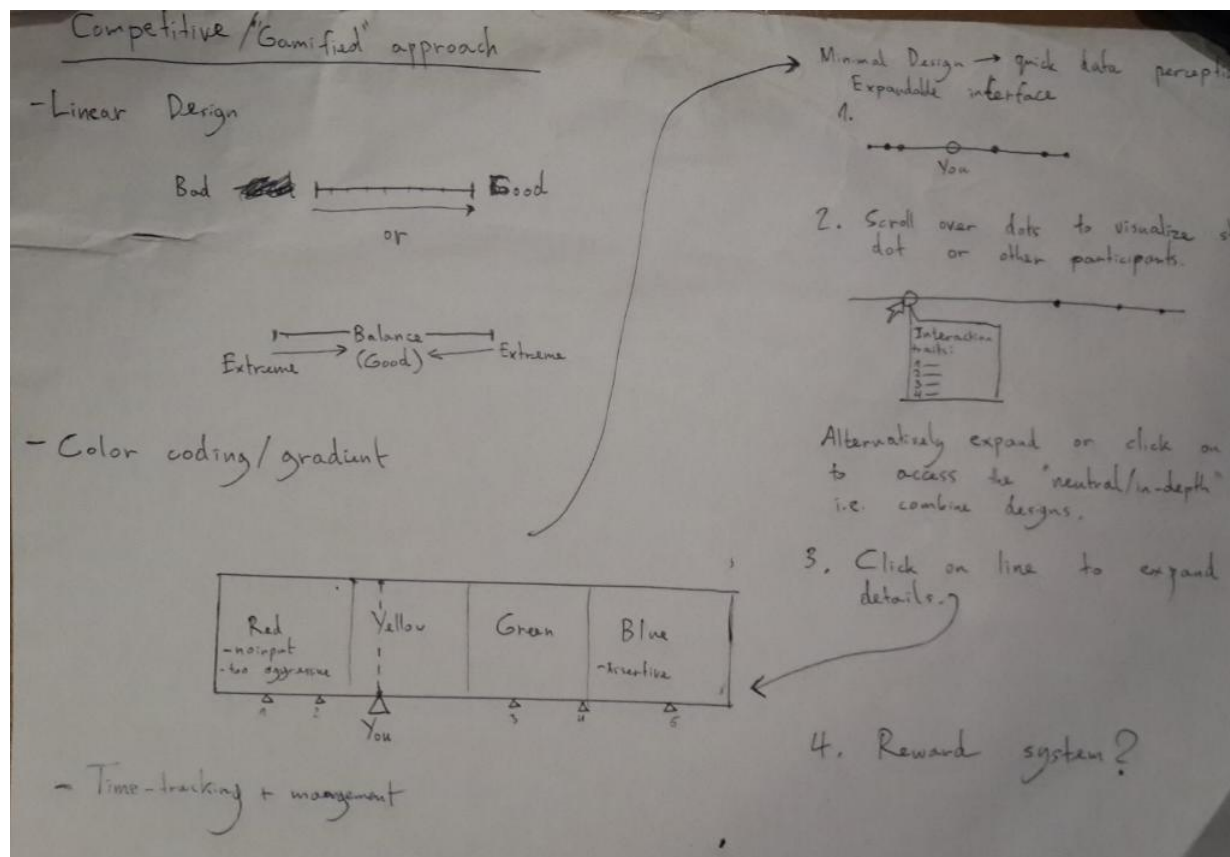 Competitive/"Gamified" approach
- Linear Design
Bad Good
or
Balance
Extreme (Good) Extreme
- Color coding/gradient
Red Yellow Green Blue
- no input
- too aggressive - Assertive
1 2 3 4 5
You
- Time-tracking + mangement
Minimal Design → quick data percepti
Expandable interface
1.
You
2. Scroll over dots to visualize s
dot or other participants.
Interaction
traits:
1 —
2 —
3 —
4 —
Alternatively expand or click on
to access the "neutral/in-depth"
i.e. combine designs.
3. Click on line to expand
details.
4. Reward system?